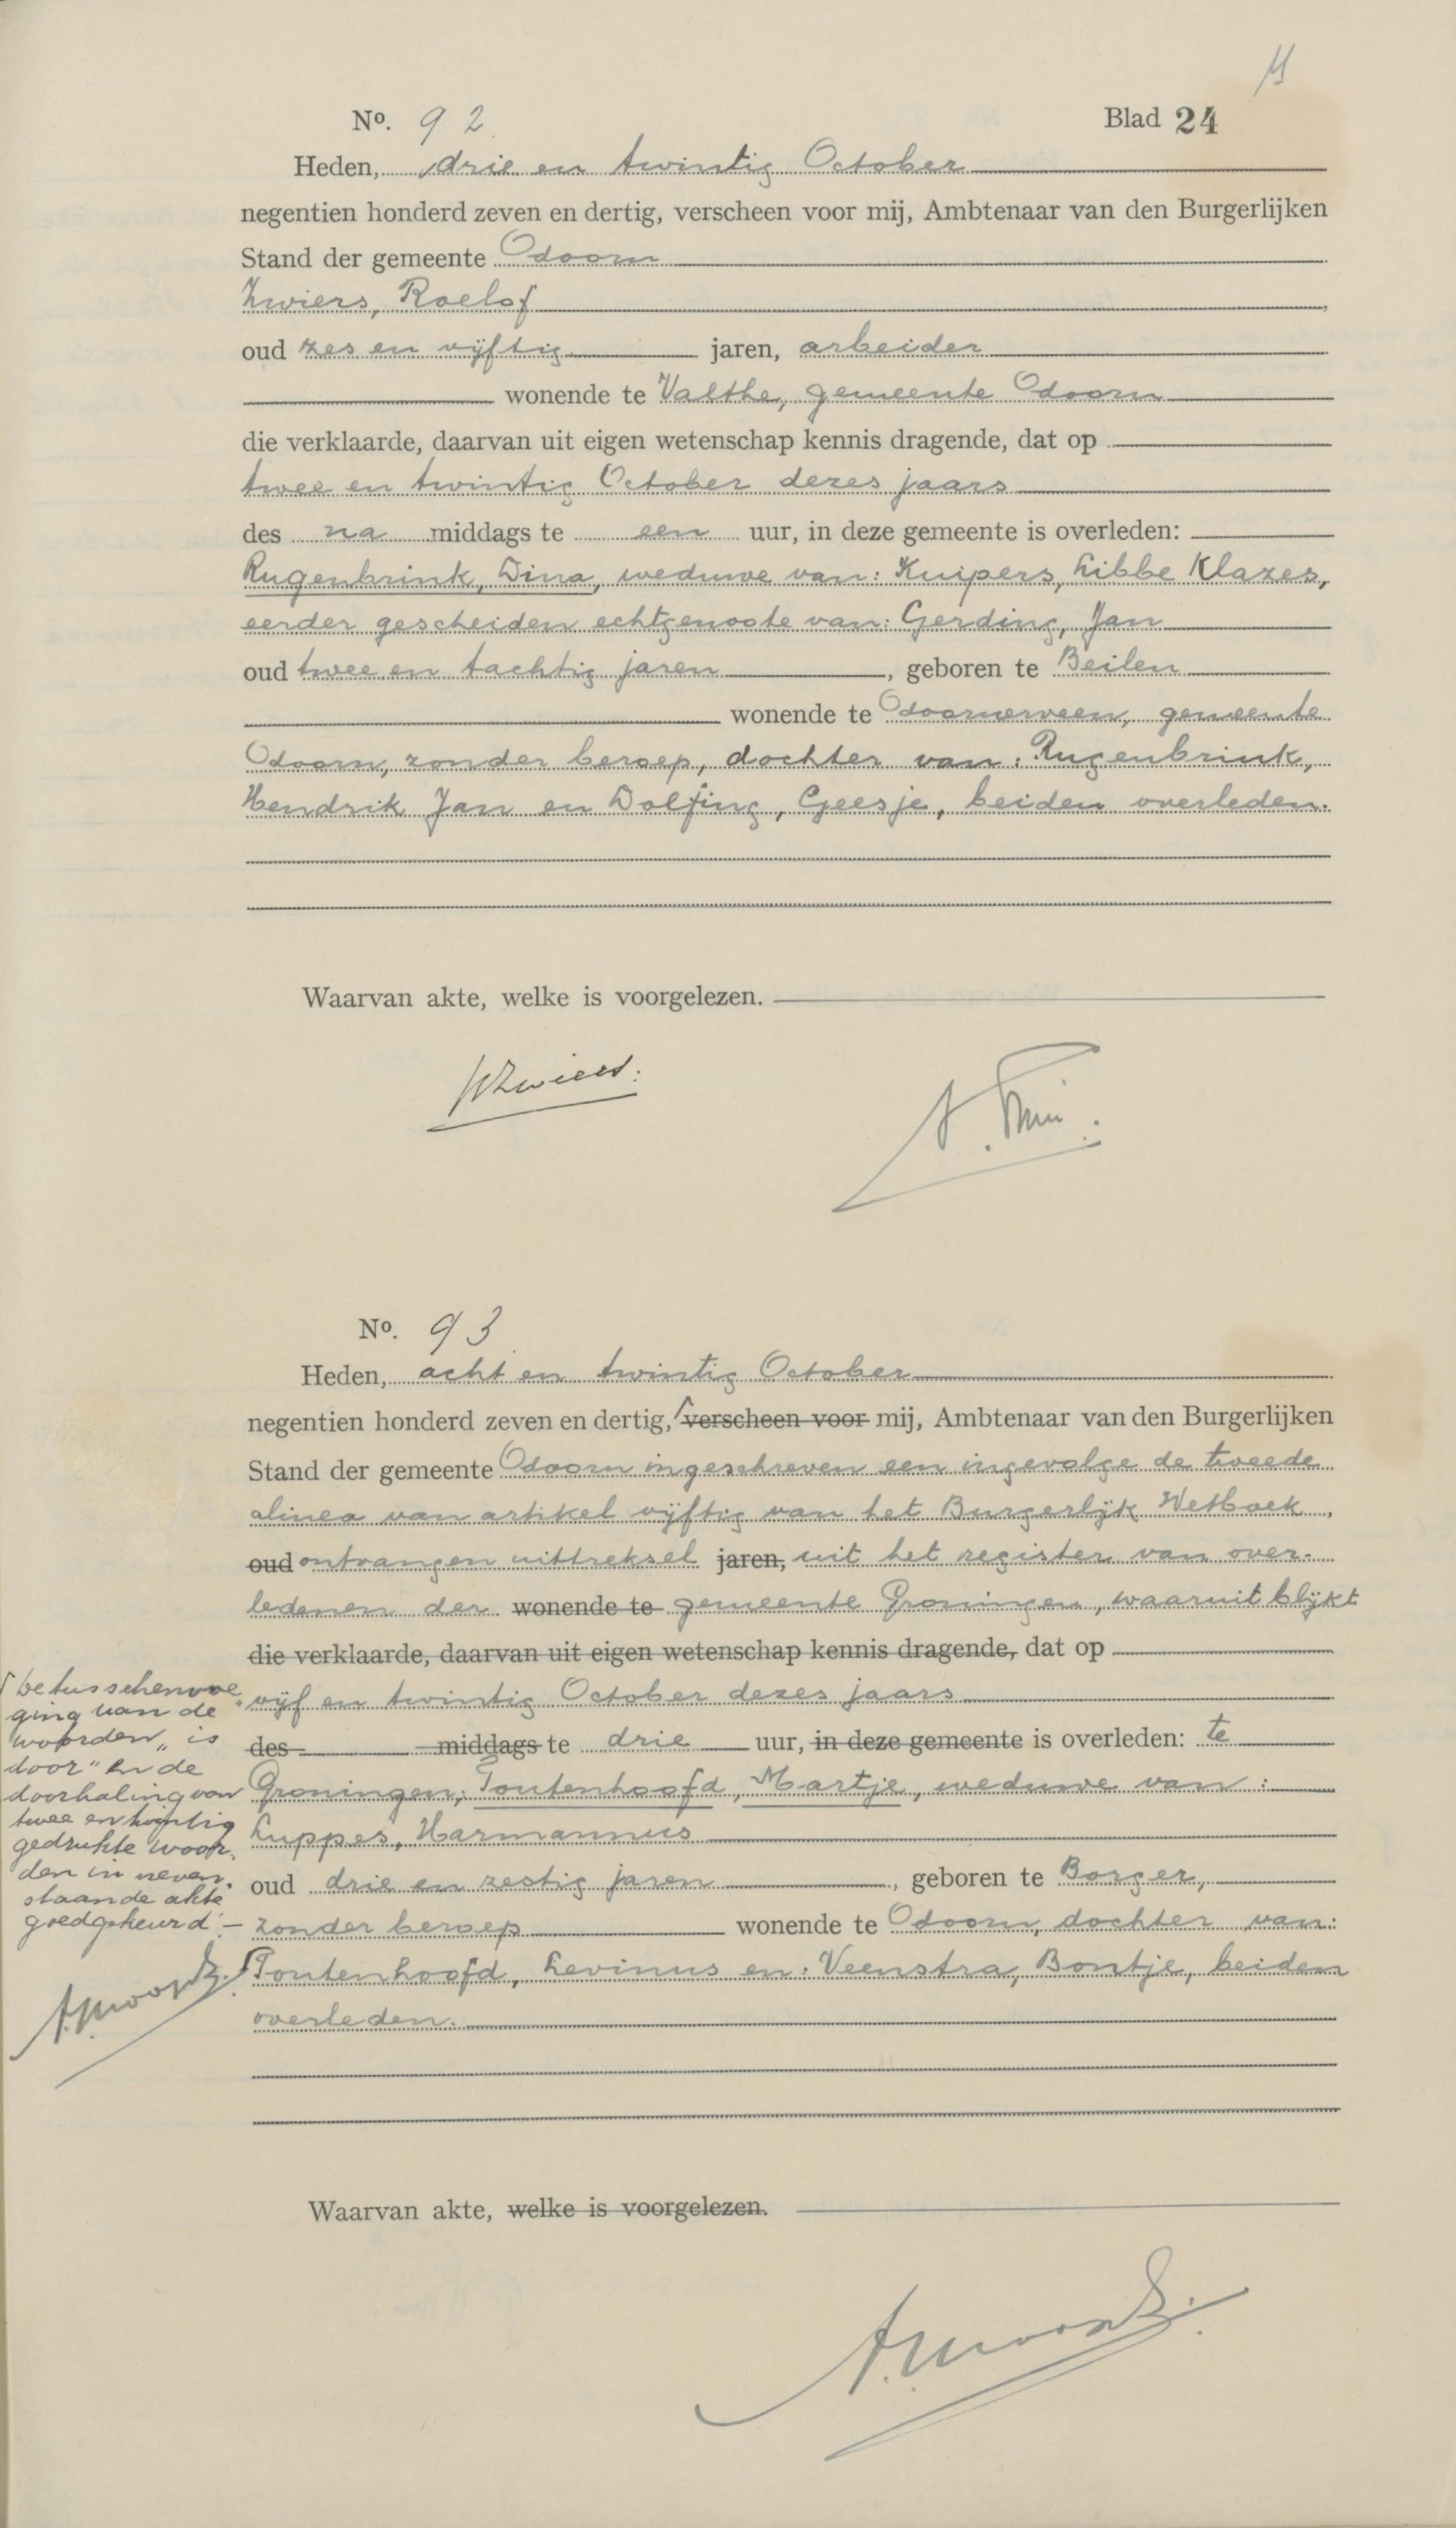 Blad 24
No. 92
Heden, drie en twintig October
negentien honderd zeven en dertig, verscheen voor mij, Ambtenaar van den Burgerlijken
Stand der gemeente Odoorn
Zwiers, Roelof
oud zes en vijftig jaren, arbeider
wonende te Valthe, gemeente Odoorn
die verklaarde, daarvan uit eigen wetenschap kennis dragende, dat op
twee en twintig October dezes jaars
des na middags te een uur, in deze gemeente is overleden:
Rugenbrink, Dina, weduwe van: Kuipers, Libbe Klazes,
eerder gescheiden echtgenoote van: Gerding, Jan
oud twee en tachtig jaren, geboren te Beilen
wonende te Odoornerveen, gemeente
Odoorn, zonder beroep, dochter van: Rugenbrink,
Hendrik Jan en Dolfing, Geesje, beiden overleden.
Waarvan akte, welke is voorgelezen.
RZwiers.
No. 93
Heden, acht en twintig October
negentien honderd zeven en dertig, verscheen voor mij, Ambtenaar van den Burgerlijken
Stand der gemeente Odoorn ingeschreven een ingevolge de tweede
alinea van artikel vijftig van het Burgerlijk Wetboek,
oud ontvangen uittreksel jaren, uit het register van over-
ledenen der wonende te gemeente Groningen, waaruit blijkt
die verklaarde, daarvan uit eigen wetenschap kennis dragende, dat op
vijf en twintig October dezes jaars
des middags te drie uur, in deze gemeente is overleden: te
Groningen, Toutenhoofd, Martje, weduwe van:
Luppes, Harmannus
oud drie en zestig jaren, geboren te Borger,
zonder beroep wonende te Odoorn, dochter van:
Toutenhoofd, Levinus en: Veenstra, Bontje, beiden
overleden.
betusschenvoe
ging van de
woorden „is
door" en de
doorhaling van
twee en twintig
gedrukte woor-
den in neven-
staande akte
goedgekeurd. -
Waarvan akte, welke is voorgelezen.